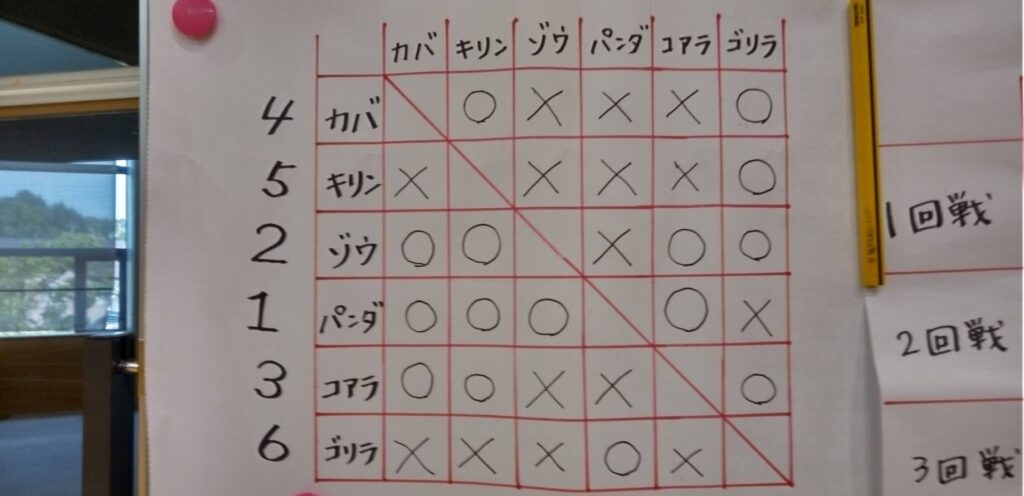 カバ キリン ゾウ パンダ コアラ ゴリラ
4 カバ ○ × × × ○
5 キリン × × × × ○
2 ゾウ ○ ○ × ○ ○
1 パンダ ○ ○ ○ ○ ×
3 コアラ ○ ○ × × ○
6 ゴリラ × × × ○ ×
1回戦
2回戦
3回戦